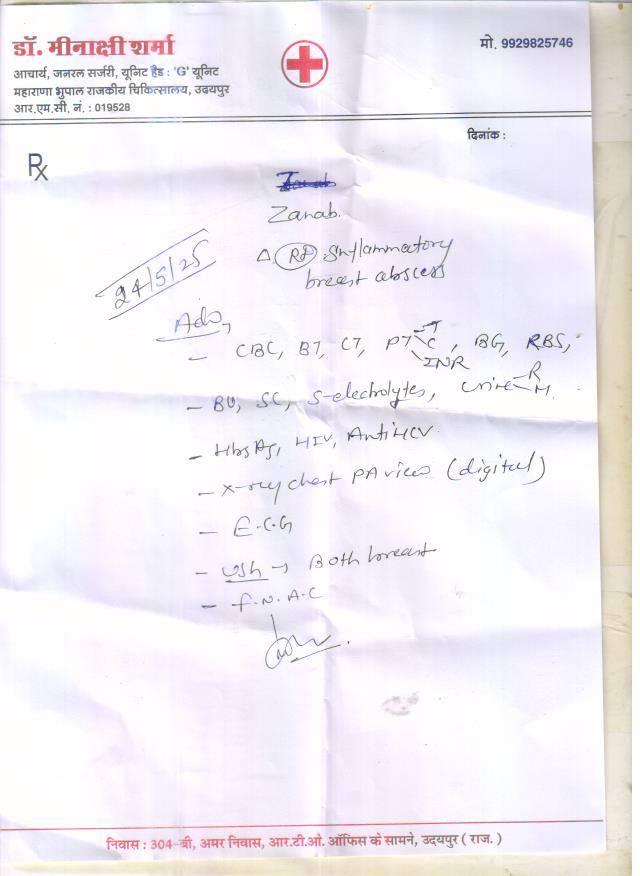 डॉ. मीनाक्षी शर्मा
आचार्य, जनरल सर्जरी, यूनिट हैड : 'G' यूनिट
महाराणा भुपाल राजकीय चिकित्सालय, उदयपुर
आर.एम.सी. नं. : 019528
मो. 9929825746
दिनांक :
Rx
Zanab.
24/5/25
Δ Rt Inflammatory
breast abscess
Adv,
- CBC, BT, CT, PT T C INR, BG, RBS,
- BU, SC, S-electrolytes, Urine R M
- HbsAg, HIV, Anti HCV
- X-ray chest PA view (digital)
- E.C.G
- USG → Both breast
- F.N.A.C
निवास : 304-बी, अमर निवास, आर.टी.ओ. ऑफिस के सामने, उदयपुर ( राज. )